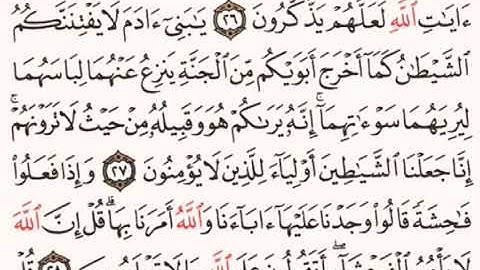 ءَايَٰتِ ٱللَّهِ لَعَلَّهُمْ يَذَّكَّرُونَ ٢٦ يَٰبَنِىٓ ءَادَمَ لَا يَفْتِنَنَّكُمُ
ٱلشَّيْطَٰنُ كَمَآ أَخْرَجَ أَبَوَيْكُم مِّنَ ٱلْجَنَّةِ يَنزِعُ عَنْهُمَا لِبَاسَهُمَا
لِيُرِيَهُمَا سَوْءَٰتِهِمَآ ۗ إِنَّهُۥ يَرَىٰكُمْ هُوَ وَقَبِيلُهُۥ مِنْ حَيْثُ لَا تَرَوْنَهُمْ ۗ
إِنَّا جَعَلْنَا ٱلشَّيَٰطِينَ أَوْلِيَآءَ لِلَّذِينَ لَا يُؤْمِنُونَ ٢٧ وَإِذَا فَعَلُوا۟
فَٰحِشَةً قَالُوا۟ وَجَدْنَا عَلَيْهَآ ءَابَآءَنَا وَٱللَّهُ أَمَرَنَا بِهَا ۗ قُلْ إِنَّ ٱللَّهَ